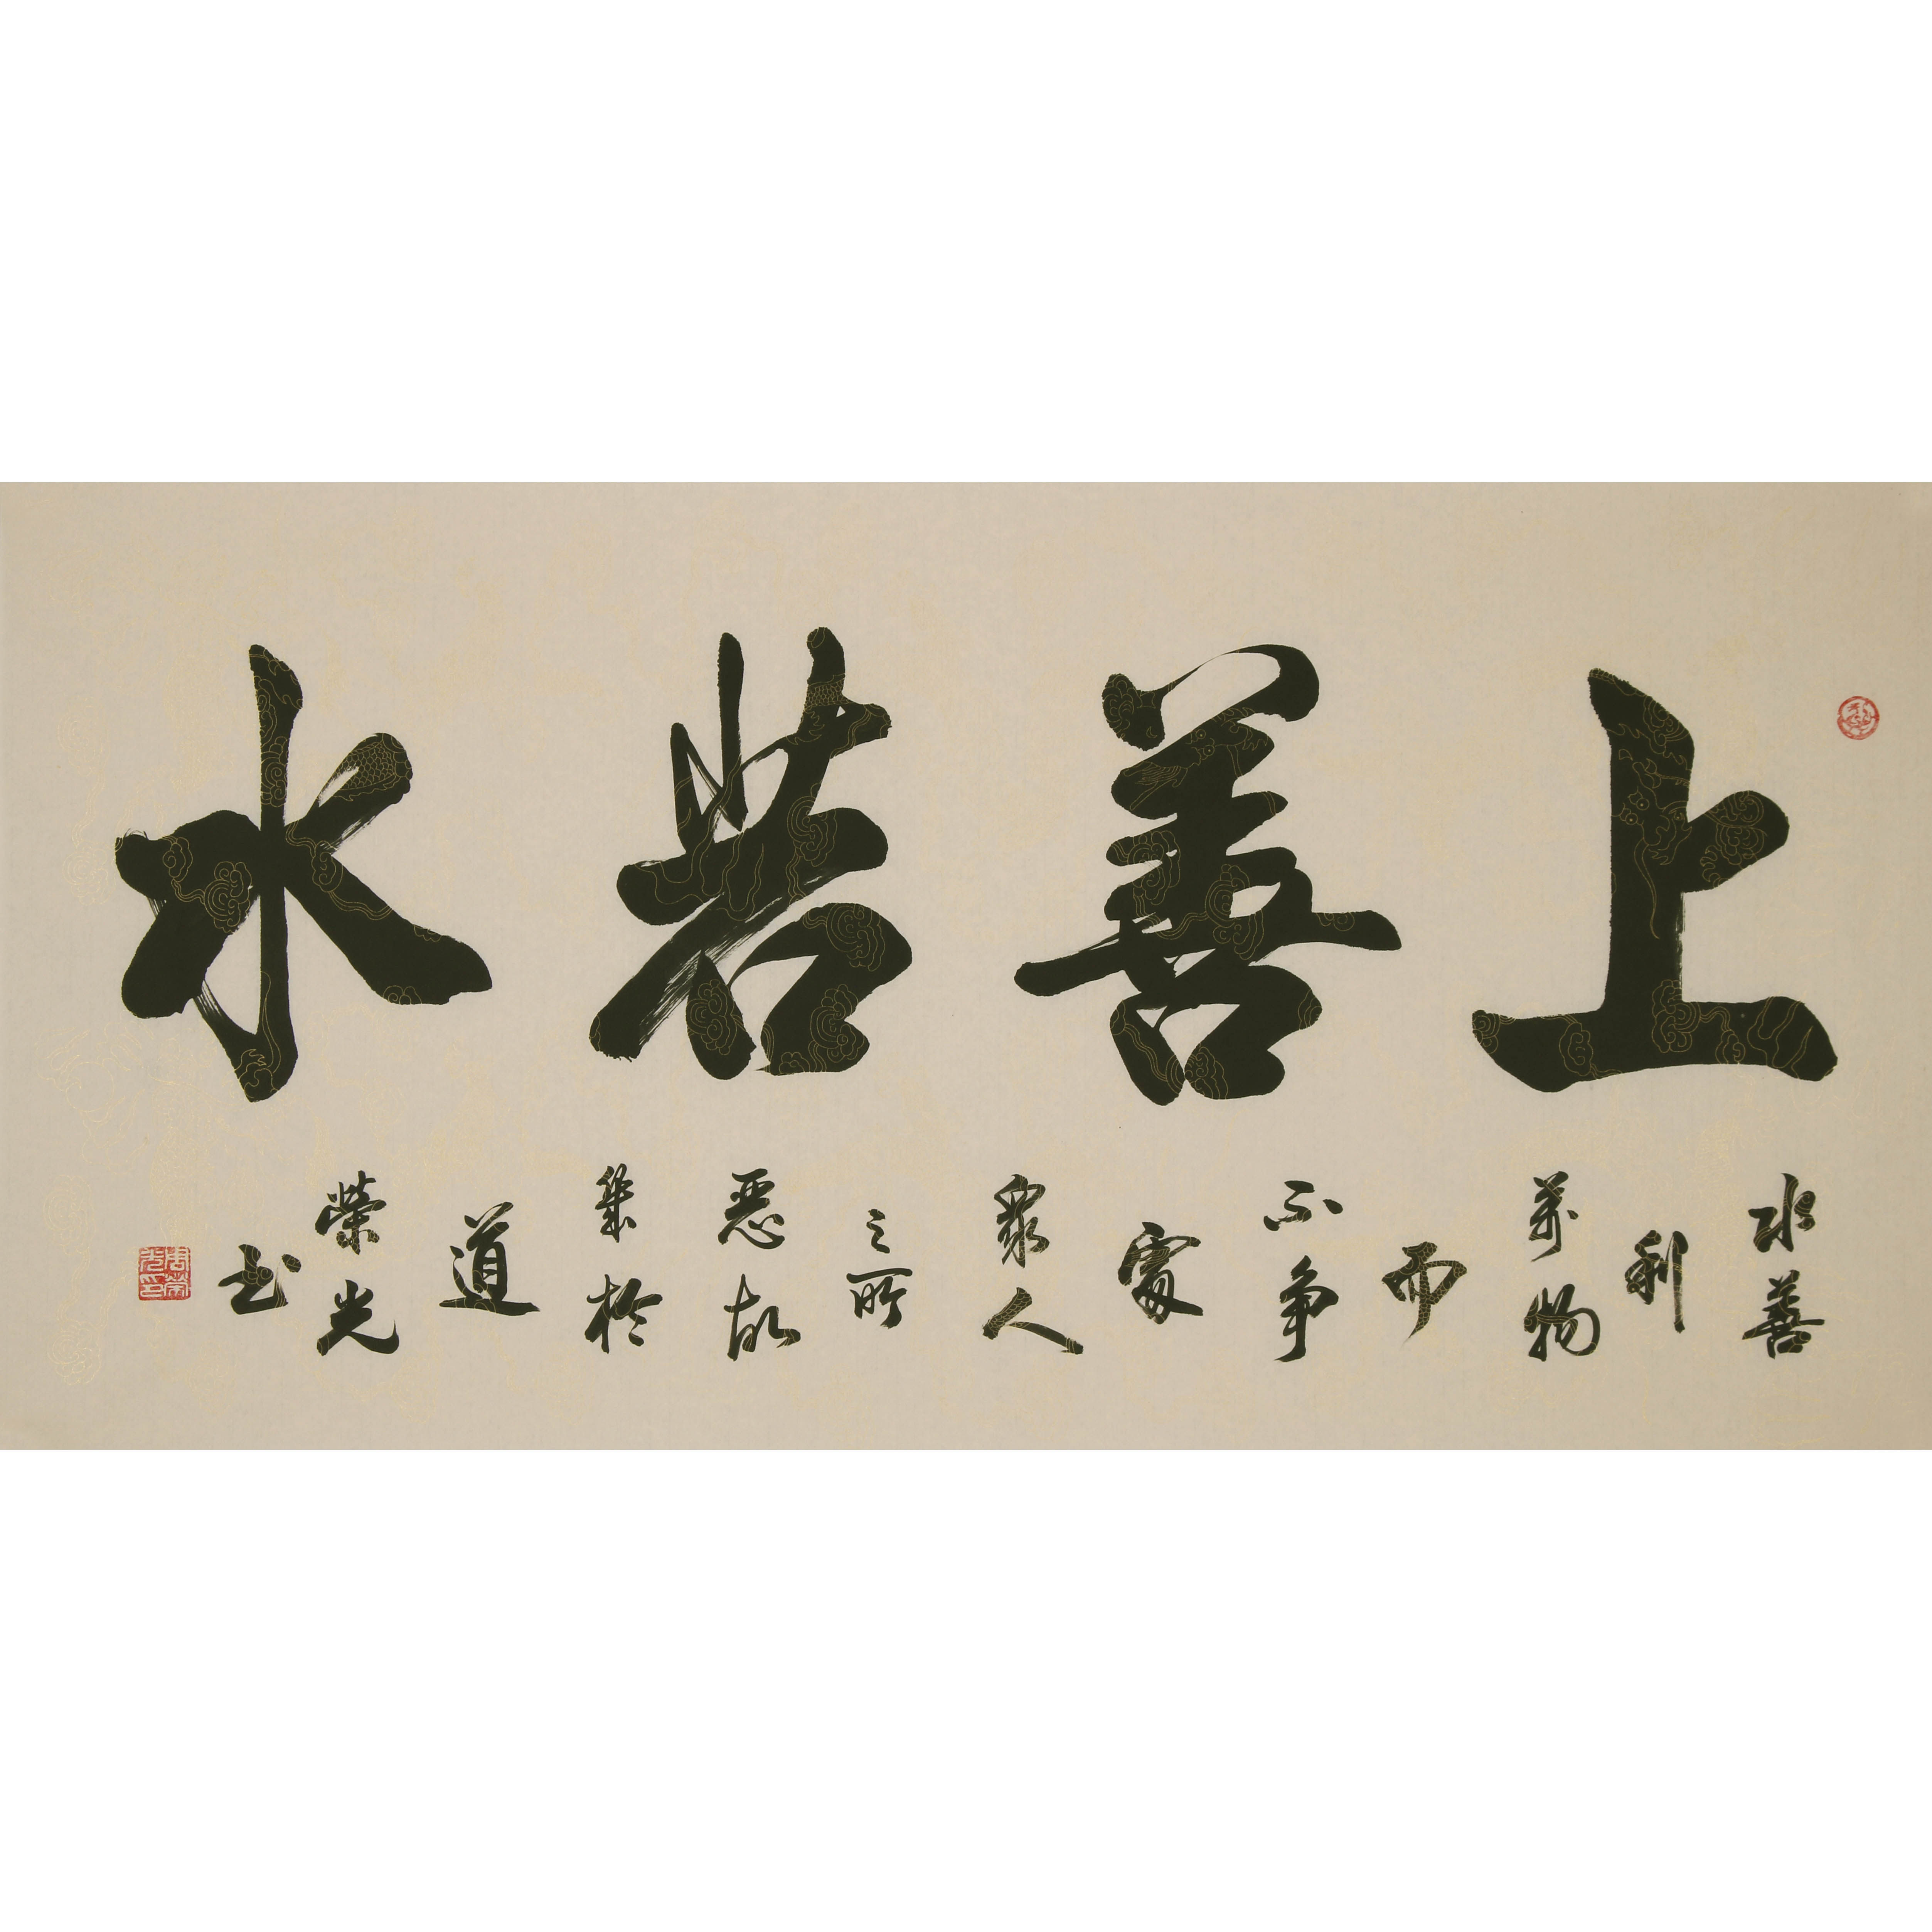 上善若水
水善利萬物而不争處衆人之所惡故幾於道
榮光书